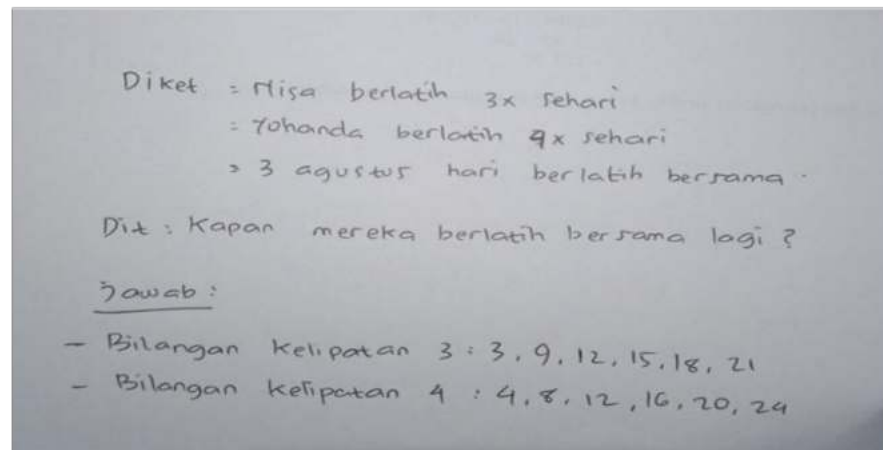 Diket = Misa berlatih 3x sehari
= Yohanda berlatih 4x sehari
= 3 agustus hari berlatih bersama.
Dit : Kapan mereka berlatih bersama lagi ?
Jawab :
- Bilangan Kelipatan 3 : 3, 9, 12, 15, 18, 21
- Bilangan Kelipatan 4 : 4, 8, 12, 16, 20, 24